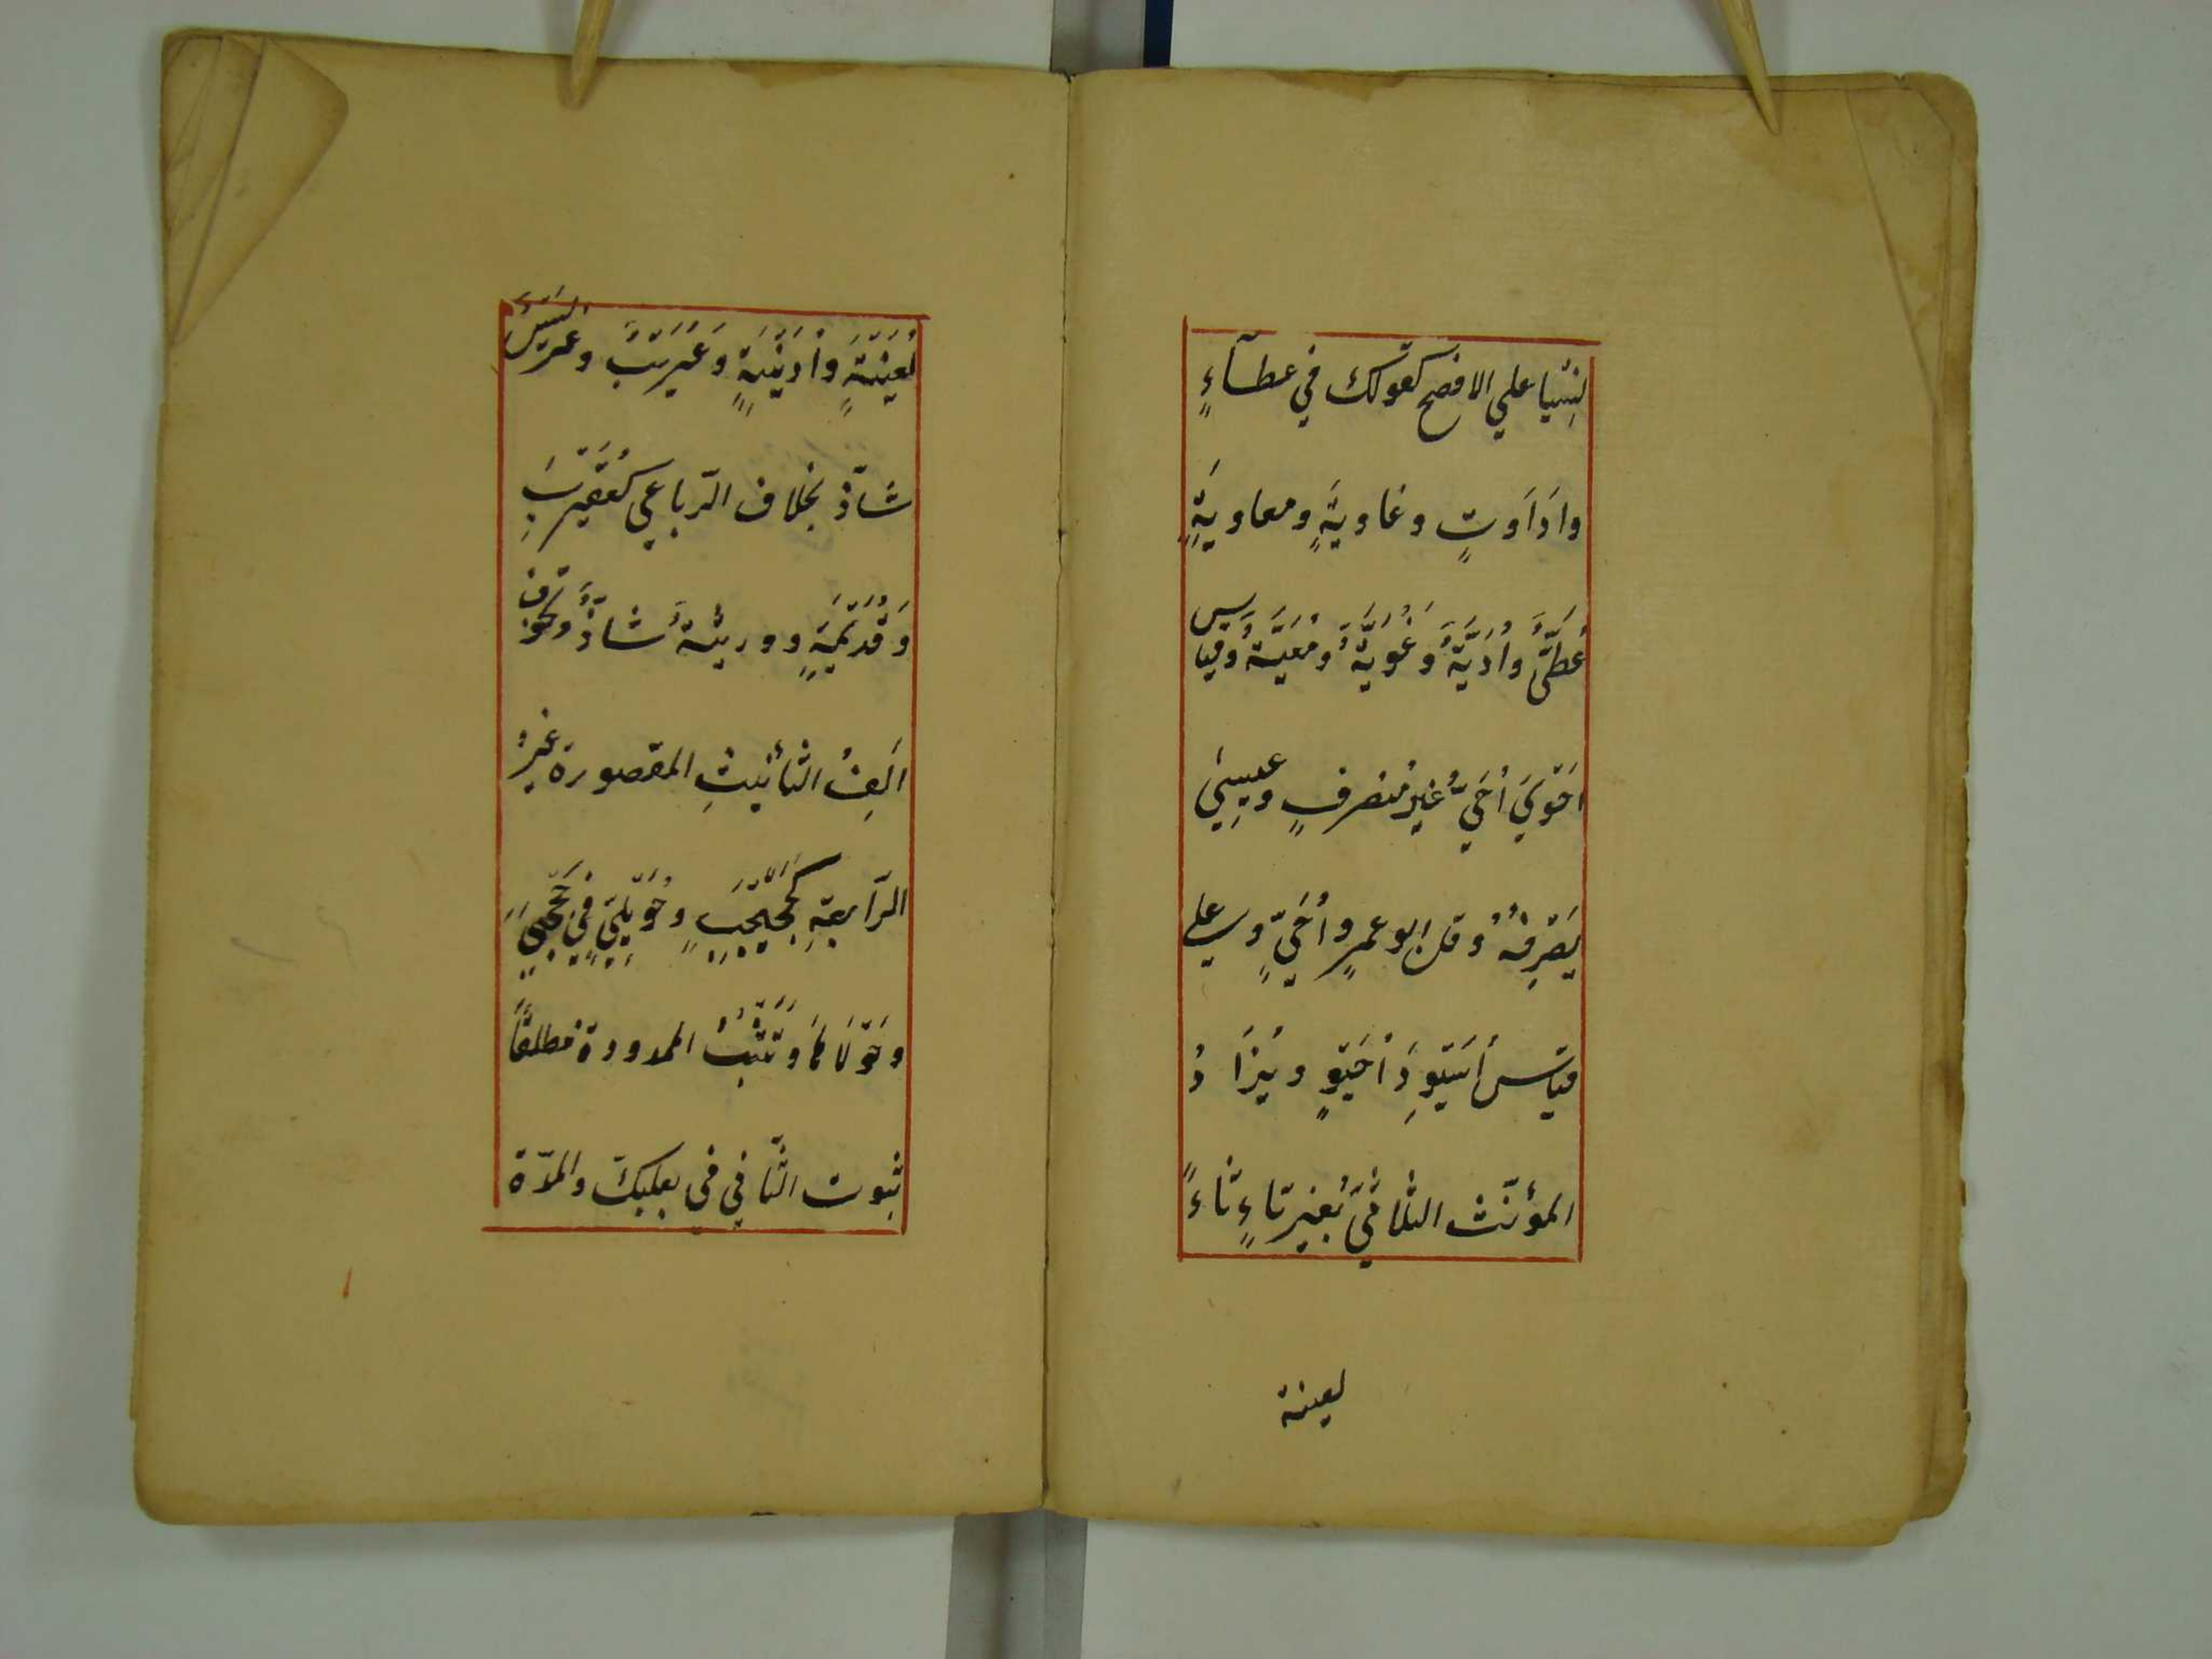 نِسْيًا علي الافصح كقولك في عطآءٍ
واَدَاوتٍ وغاويةٍ ومعاويةٍ
عُطَيٌّ واُدَيَّةٌ وَغُوَيَّةٌ ومُعَيَّةٌ وقياس
احَوْيَ اُحَيُّ غيرُ منصرفٍ وعيسىٰ
يَصْرِفُهُ وقال ابو عمرٍو اُحَيٍّ وعلي
قياس اُسَيْوِدَ اُحَيْوٍ ويُزَادُ
المؤنّث الثلاثيّ بغير تاءٍ تاءً
لعينة
كَعُيَيْنَةٍ واُذَيْنَةٍ وعُرَيْبٌ وعُرَيْسٌ
شاذّ بخلاف الرّباعي كعُقَيْرِبٍ
وَقُدَيْمَةٍ ووريئةٌ شاذٌّ وتحذف
اَلِفُ التأنيثِ المقصورة غيرُ
الرّابعةِ كَجُحَيْجِبٍ وحُوَيْلِيٍّ في جَحْجَبىٰ
وحَوْلَايَا وَتَثْبُتُ الممدودة مطلقًا
ثبوت الثّاني في بعلبكّ والمدّة